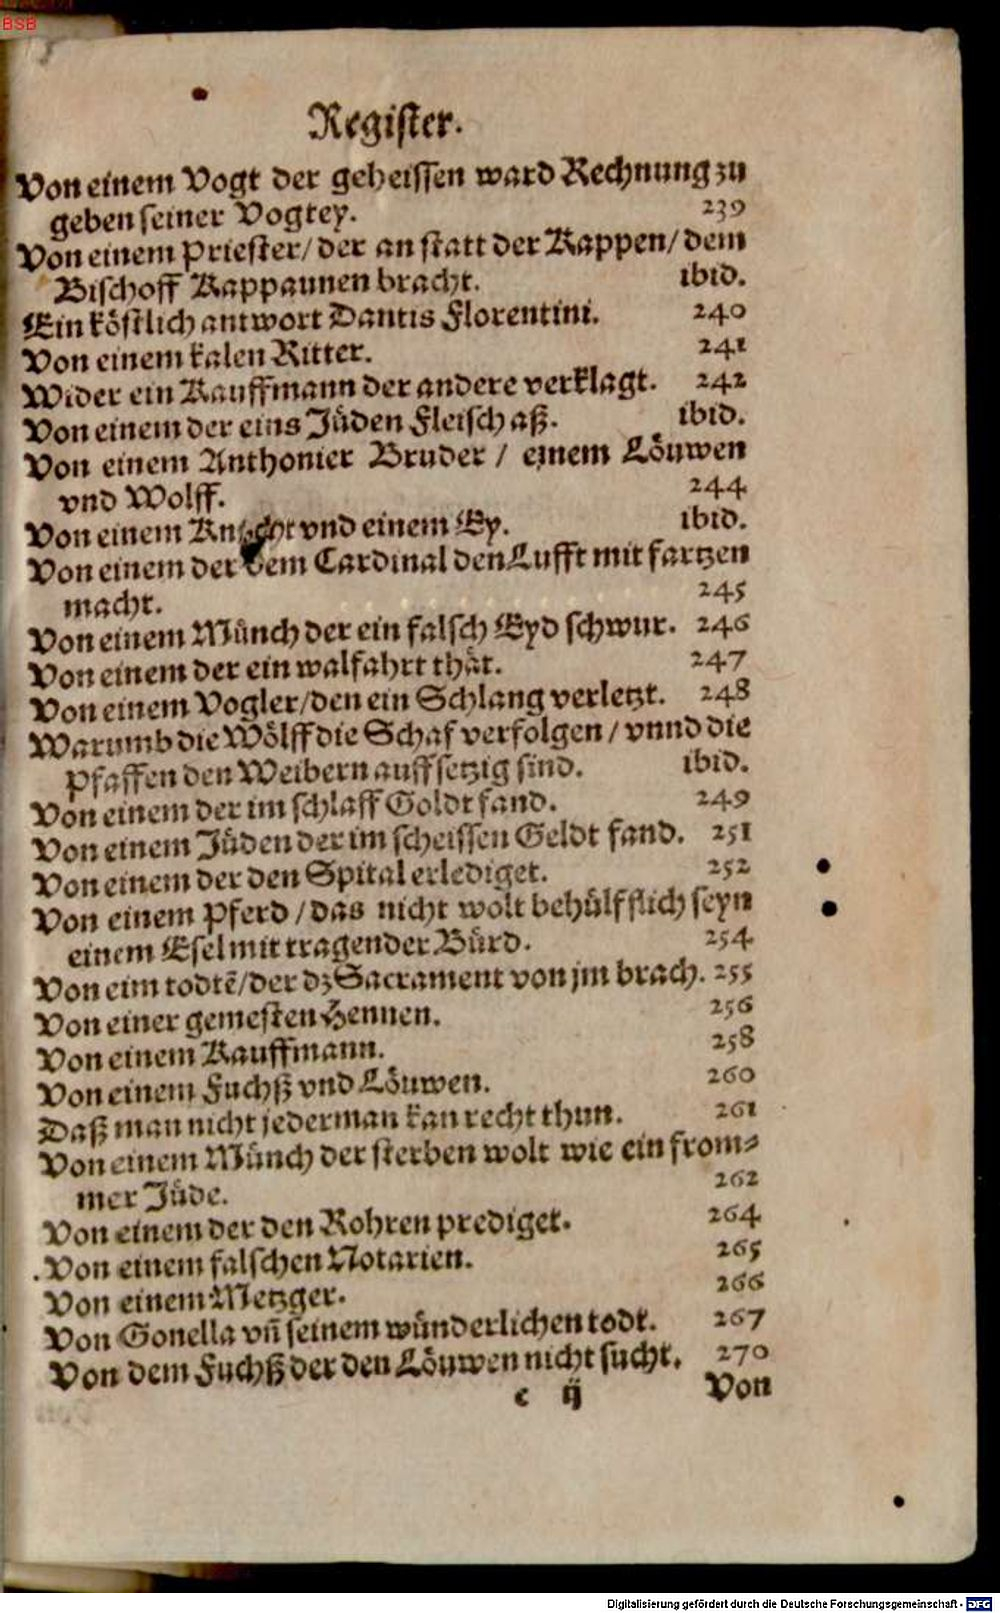 BSB
Register.
Von einem Vogt der geheissen ward Rechnung zu
geben seiner Vogtey. 239
Von einem Priester/ der an statt der Kappen/ dem
Bischoff Kappaunen bracht. ibid.
Ein köstlich antwort Dantis Florentini. 240
Von einem kalen Ritter. 241
Wider ein Kauffmann der andere verklagt. 242
Von einem der eins Jüden Fleisch aß. ibid.
Von einem Anthonier Bruder / einem Löuwen
vnd Wolff. 244
Von einem Knecht vnd einem Ey. ibid.
Von einem der dem Cardinal den Lufft mit fartzen
macht. 245
Von einem Münch der ein falsch Eyd schwur. 246
Von einem der ein walfahrt thät. 247
Von einem Vogler/den ein Schlang verletzt. 248
Warumb die Wölff die Schaf verfolgen / vnnd die
Pfaffen den Weibern auffsetzig sind. ibid.
Von einem der im schlaff Goldt fand. 249
Von einem Jüden der im scheissen Geldt fand. 251
Von einem der den Spital erlediget. 252
Von einem Pferd /das nicht wolt behülfflich seyn
einem Esel mit tragen der Bürd. 254
Von eim todtē/der dz Sacrament von jm brach. 255
Von einer gemesten Hennen. 256
Von einem Kauffmann. 258
Von einem Fuchß vnd Löuwen. 260
Daß man nicht jederman kan recht thun. 261
Von einem Münch der sterben wolt wie ein from⸗
mer Jüde. 262
Von einem der den Rohren prediget. 264
Von einem falschen Notarien. 265
Von einem Metzger. 266
Von Gonella vñ seinem wünderlichen todt. 267
Von dem Fuchß der den Löuwen nicht sucht. 270
c ij Von
Digitalisierung gefördert durch die Deutsche Forschungsgemeinschaft - DFG